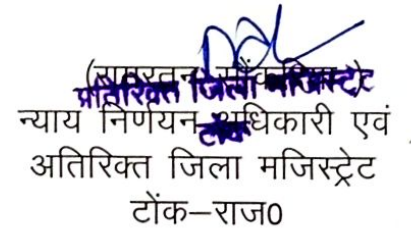 (रामरतन
अतिरिक्त जिला मजिस्ट्रेट
न्याय निर्णयन अधिकारी एवं
टोंक
अतिरिक्त जिला मजिस्ट्रेट
टोंक–राज0